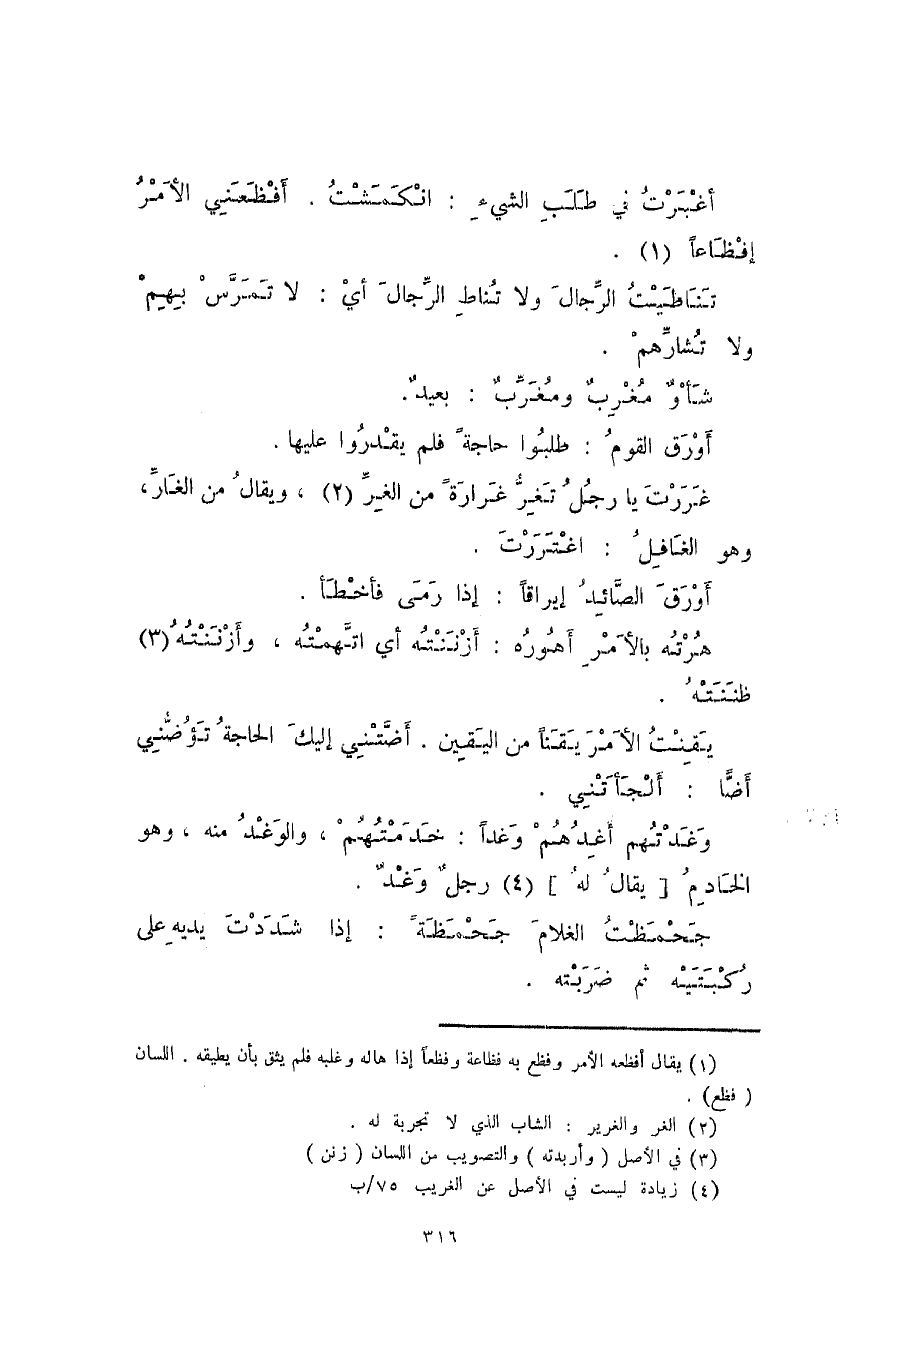 أغْبَرْتُ في طَلَبِ الشيءِ : انْكَمَشْتُ . أَفْظَعَنِي الأَمْرُ
إفْظَاعاً (١) .
تَنَاطَيْتُ الرِّجالَ ولا تُناطِ الرِّجالَ أيْ : لا تَمَرَّسْ بِهِمْ
ولا تُشارِّهمْ .
شَأْوٌ مُغْرِبٌ ومُغَرِّبٌ : بعيدٌ.
أَوْرَق القومُ : طلبُوا حاجةً فلم يقْدرُوا عليها .
غَرَرْتَ يا رجُلُ تَغِرُّ غَرارَةً من الغِرِّ (٢) ، ويقالُ من الغَارِّ،
وهو الغَافِلُ : اغْتَرَرْتَ .
أَوْرَقَ الصَّائِدُ إيراقاً : إذا رَمَى فأخْطَأَ .
هُرْتُه بالأَمْرِ أَهُورُه : أَزْنَنْتُه أي اتَّهمْتُه ، وأَزْنَنْتُهُ (٣)
ظنَنَتْهُ .
يَقِنْتُ الأَمْرَ يَقَناً من اليَقِين . أَضَّتْنِي إليكَ الحاجةُ تَؤُضُّنِي
أَضًّا : أَلْجَأَتْنِي .
وَغَدْتُهم أَغِدُهُمْ وَغداً : خَدَمْتُهُمْ ، والوَغْدُ منه ، وهو
الخَادِمُ [ يقالُ لهُ ] (٤) رجلٌ وَغْدٌ .
جَحْمَظْتُ الغلامَ جَحْمَظَةً : إذا شَدَدْتَ يديهِ على
رُكْبَتَيْه ثم ضَرَبْته .
(١) يقال أفظعه الأمر وفظع به فظاعة وفظعاً إذا هاله وغلبه فلم يثق بأن يطيقه . اللسان
( فظع) .
(٢) الغر والغرير : الشاب الذي لا تجربة له .
(٣) في الأصل ( وأربدته ) والتصويب من اللسان ( زنن )
(٤) زيادة ليست في الأصل عن الغريب ٧٥/ب
٣١٦